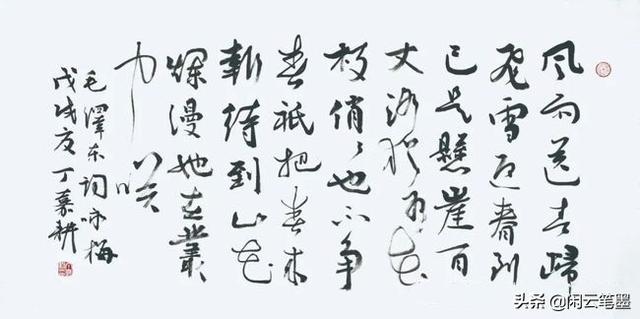 风雨送春歸
飛雪迎春到
已是懸崖百
丈冰猶有花
枝俏〻也不争
春祇把春来
報待到山花
爛漫她在叢
中笑
毛澤东词咏梅
戊戌夏丁嘉耕
头条 @闲云笔墨